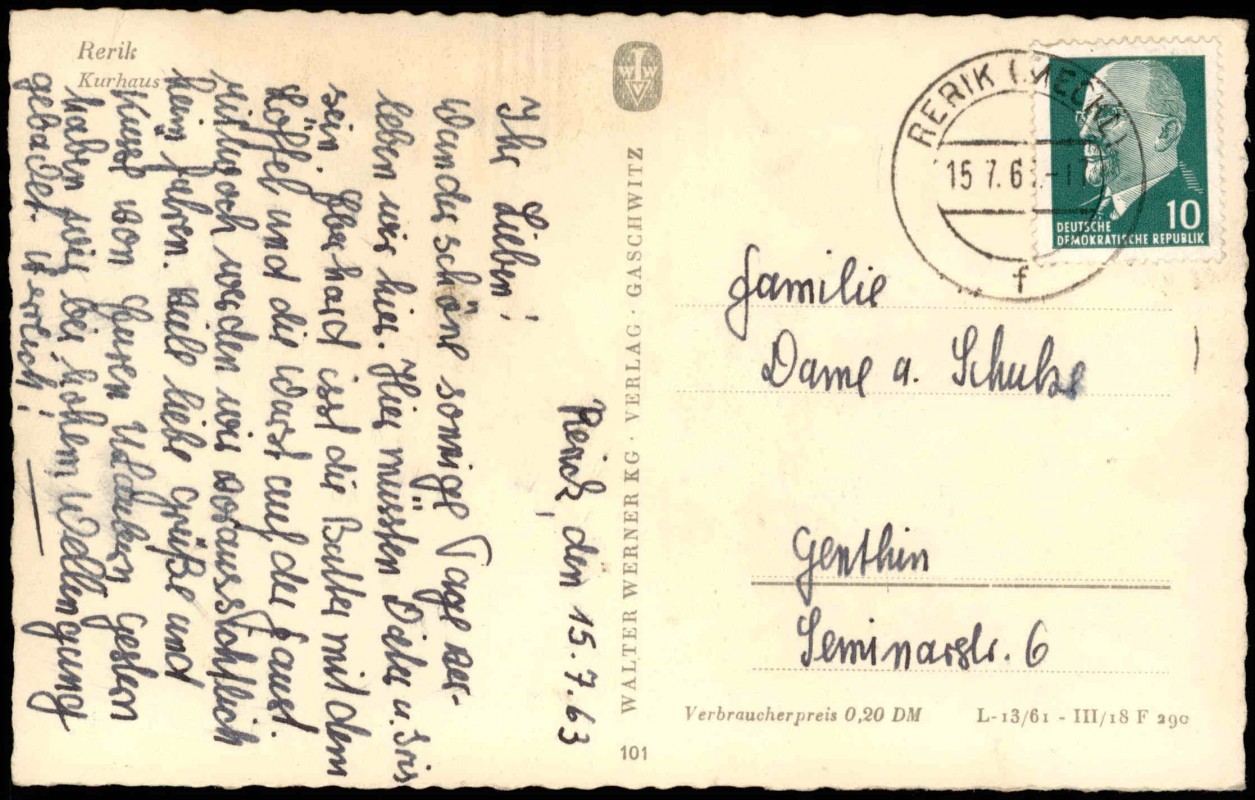 Rerik
Kurhaus
Rerik, den 15.7.63
Ihr Lieben!
Wunderschöne sonnige Tage ver-
leben wir hier. Hier müssten Dieter u. Iris
sein. Eberhard isst die Butter mit dem
Löffel und die Wurst auf der Faust.
Mittwoch werden wir voraussichtlich
heim fahren. Viele liebe Grüße und
Küsse von Euren Urlaubern. Gestern
haben wir bei hohem Wellengang
gebadet. Herrlich!
WALTER WERNER KG · VERLAG · GASCHWITZ
101
RERIK (MECKL)
15 7.6
f
10
DEUTSCHE
DEMOKRATISCHE REPUBLIK
Familie
Dame u. Schulze
Genthin
Seminarstr. 6
Verbraucherpreis 0,20 DM L-13/61 - III/18 F 290